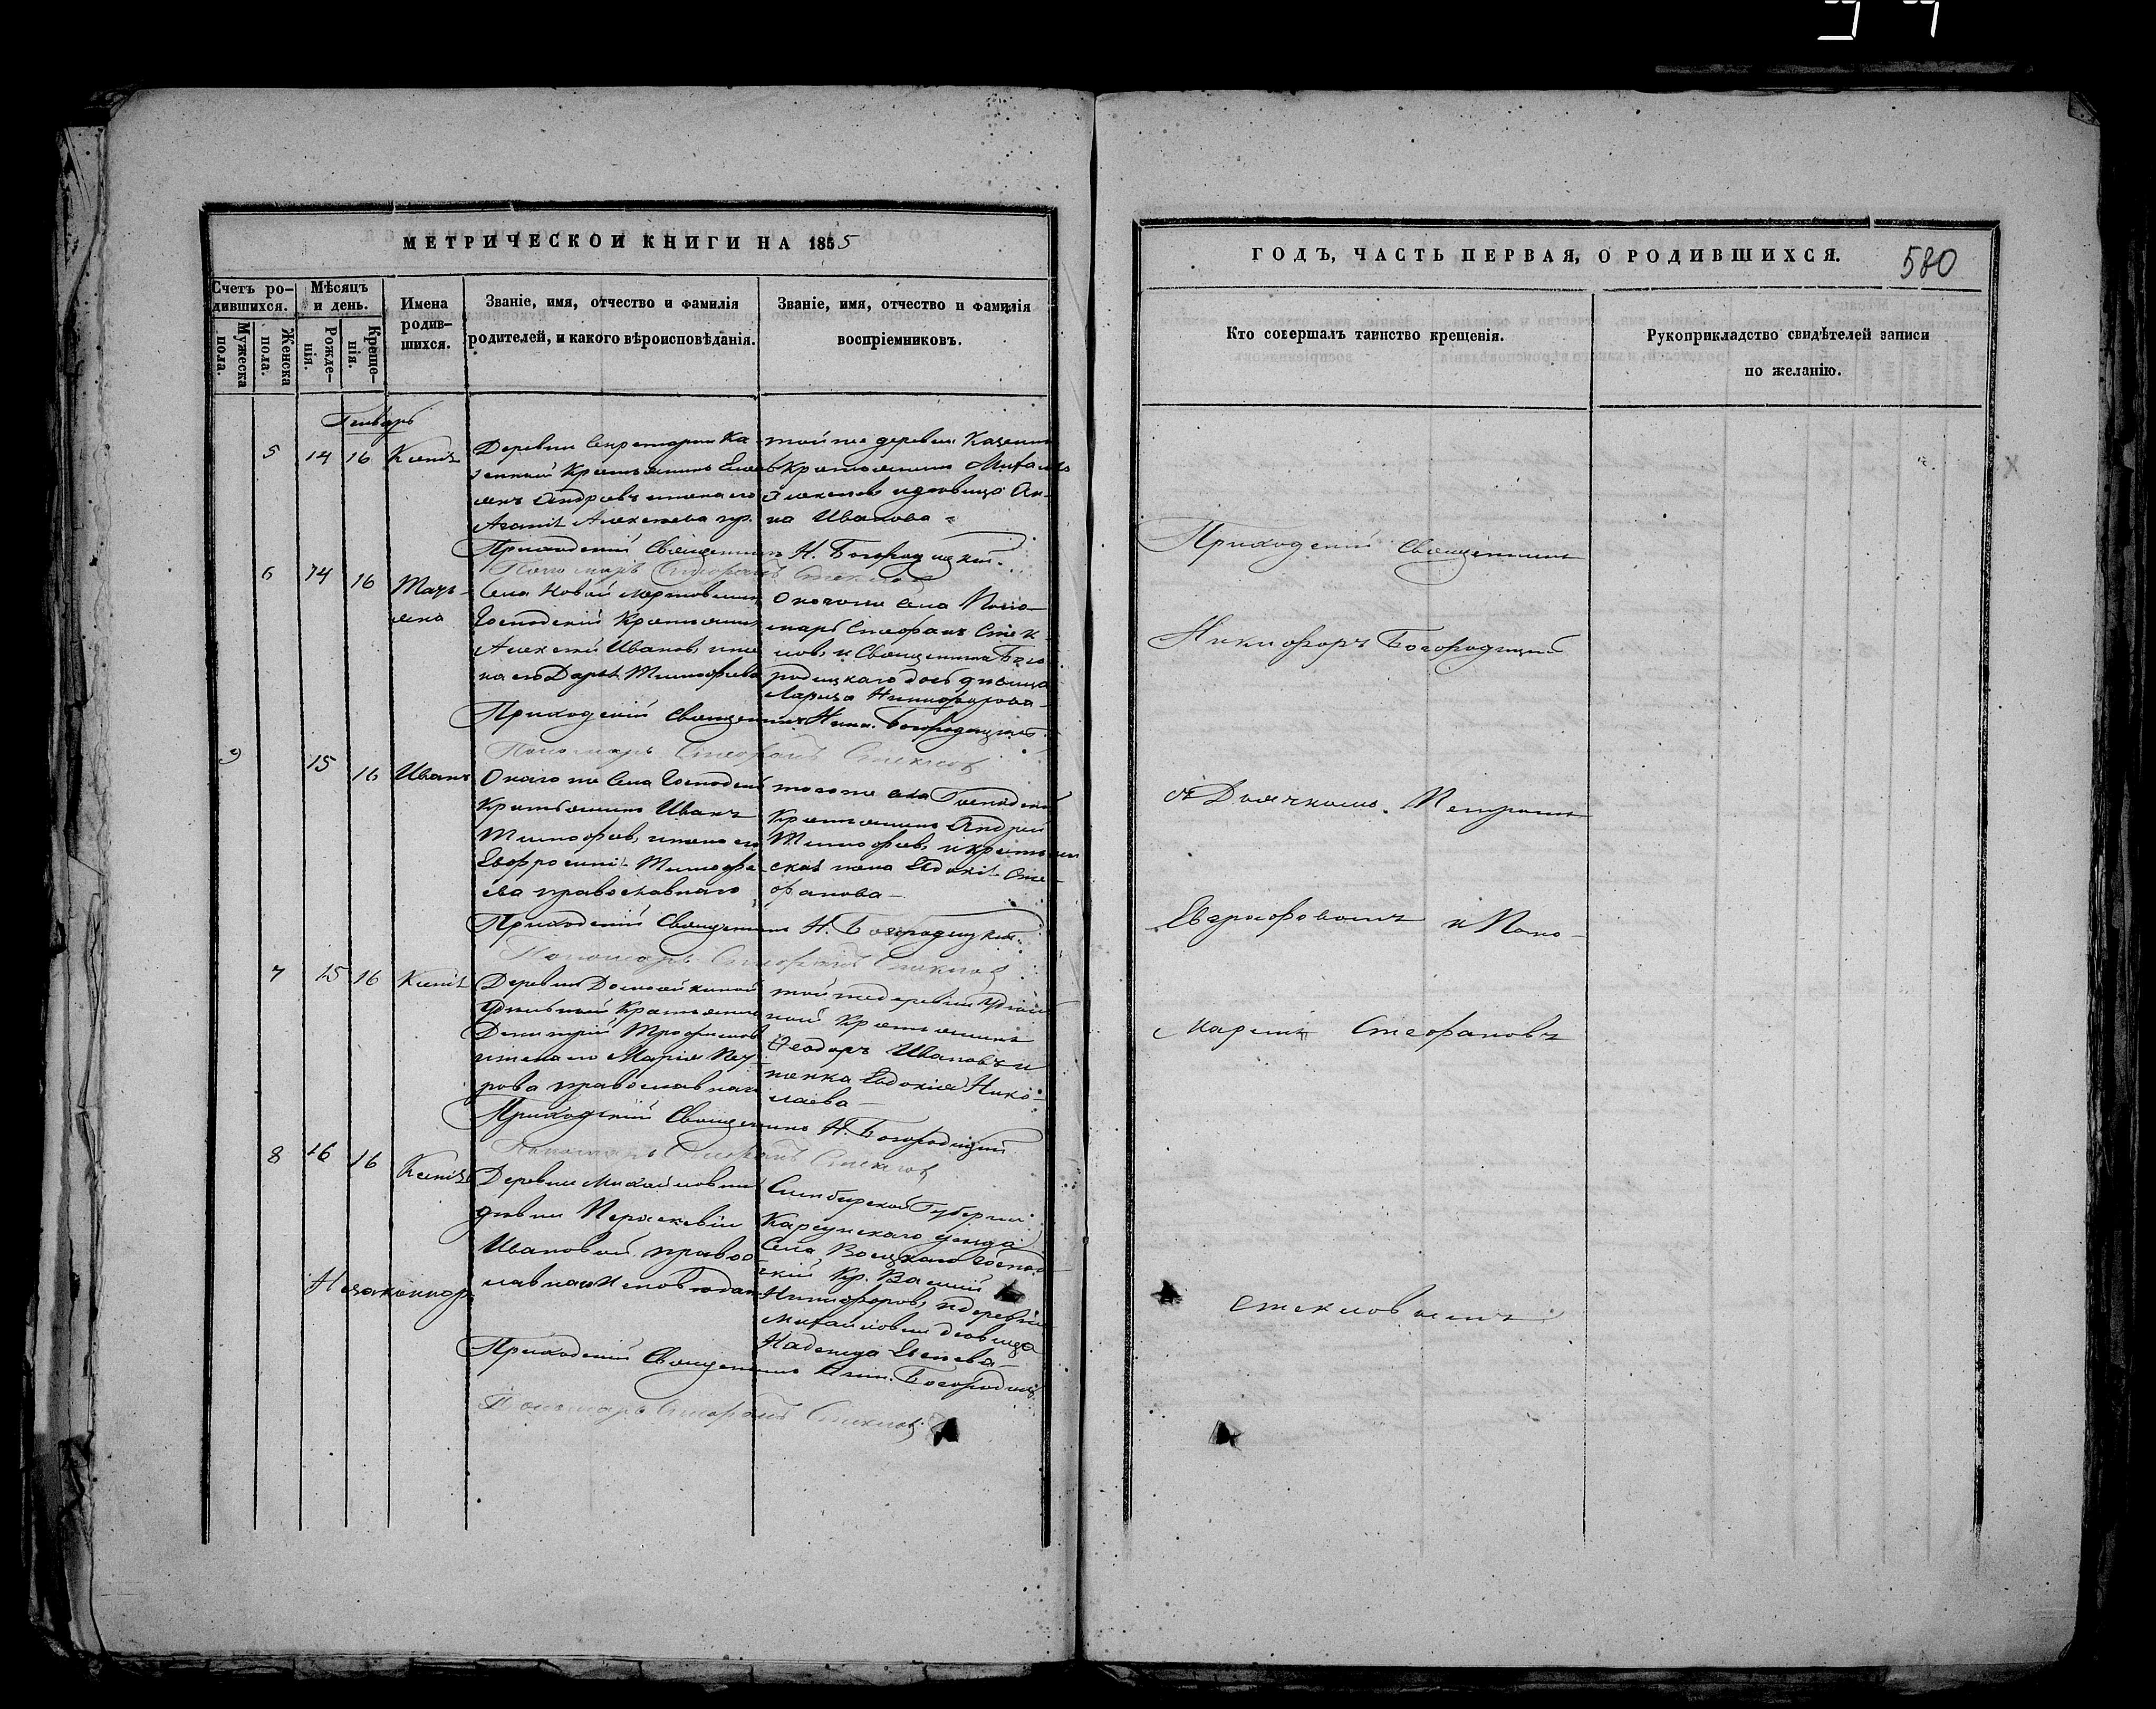 МЕТРИЧЕСКОЙ КНИГИ НА 1855
Счетъ ро-
дившихся.
Мужеска пола.
Женска пола.
Мѣсяцъ и день.
Рожде-
нія.
Креще-
нія.
Имена
родив-
шихся.
Званіе, имя, отчество и фамилія
родителей, и какого вѣроисповѣданія.
Званіе, имя, отчество и фамилія
воспріемниковъ.
Генварь
5 14 16 Ксенія
Деревни Ка-
зенный Крестьянинъ
Андреевъ жена его
Агапія Алексеева пр.
той же деревни Казенный
Крестьянинъ Михаилъ
Алексеевъ и девица Ан-
на Иванова
Приходскій Священникъ Н. Богородицкій.
Пономарь Стефанъ Стеклов
6 14 16 Татья-
яна
Села Новой
Господскій Крестьянинъ
Алексей Иванов, жена
на его Дарья Тимофеева
Онаго же Села Поно-
марь Стефанъ Стек-
лов, и Священника Бого
родицкаго дочь девица
Лариса Никифорова
Приходскій Священникъ Ники. Богородицкій
Пономарь Стефанъ Стеклов
9 15 16 Иванъ
Онаго же Села Господскій
Крестьянинъ Иванъ
Тимофеев, жена его
Евфросинія Тимофе-
ева православнаго
того же села Господскій
Крестьянинъ Андрей
Тимофеев, и крестьян
ская жена Евдокія Сте-
фанова
Приходскій Священникъ Н. Богородицкій.
Пономарь Стефанъ Стеклов
7 15 16 Ксенія
Деревни
Удельный Крестьянинъ
Димитрій Трофимов
жена его Марія Пет
рова православнаго
той же деревни Удель
ной Крестьянинъ
Ѳеодоръ Ивановъ и
женка Евдокія Нико-
лаева
Приходскій Священникъ Н. Богородицкій
Пономарь Стефанъ Стеклов
8 16 16 Ксенія
Незаконнор.
Деревни Михайловки
девки Параскевіи
Ивановой правос
лавнаго Исповедан
Симбирской Губерніи
Карсунскаго уезда
Села Господ
скій Кр. Василій
Никифоров, и деревни
Михайловки девица
Надежда
Приходскій Священникъ Ник. Богородицк.
Пономарь Стефанъ Стеклов
ГОДЪ, ЧАСТЬ ПЕРВАЯ, О РОДИВШИХСЯ.
580
Кто совершалъ таинство крещенія.
Рукоприкладство свидѣтелей записи
по желанію.
Приходскій Священникъ
Никифоръ Богородицкій
съ Дьячкомъ Петромъ
Евграфовымъ и Поно-
маремъ Стефановъ
Стекловымъ